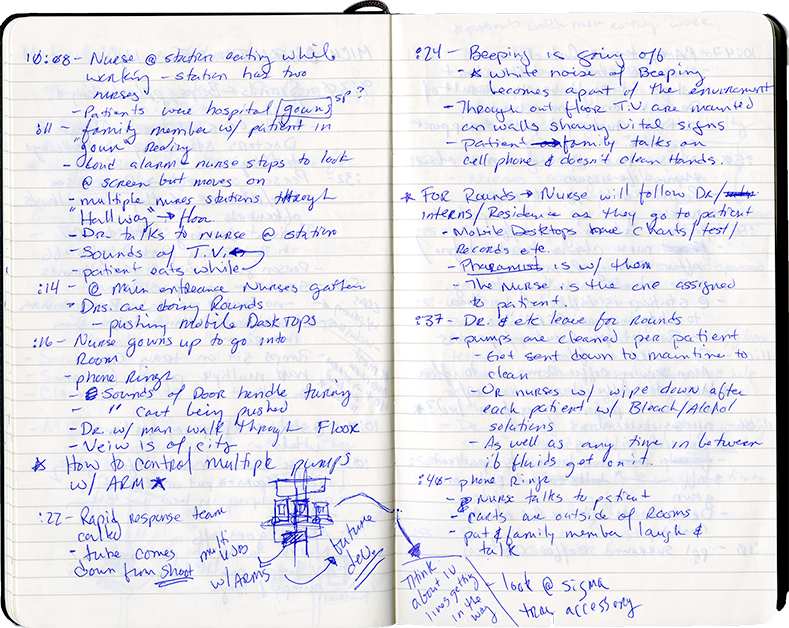 10:08 - Nurse @ station eating while
working - station has two
nurses
- Patients were hospital [gown] sp?
:11 - family member w/ patient in
"gown" Reading
- Loud alarm - nurse stops to look
@ screen but moves on
- multiple nures stations through
"Hallway" → floor
- Dr. talks to nurse @ station
- Sounds of T.V.
- patient eats while
:14 - @ main entrance Nurses gather
- Drs. are doing Rounds
- pushing mobile Desktops
:16 - Nurse gowns up to go into
Room
- phone Rings
- Sounds of Door handle turing
- " cart being pushed
- Dr. w/ man walk through Floor
- Veiw is of city
* How to control multiple pumps
w/ ARM *
:22 - Rapid response team
called
- tube comes
down from shoot
multi
w/ARMS
future
dev.
:24 - Beeping is going off
- * white noise of Beeping
becomes apart of the environment
- Through out floor T.V. are mounted
on walls showing vital signs
- patient family talks on
cell phone & doesn't clean Hands.
* FOR Rounds → Nurse will follow Dr/
interns/Residence as they go to patient
- Mobile Desktops have charts/test/
Records etc.
- Pharamist is w/ them
- The Nurse is the one assigned
to patient.
:37 - Dr. & etc leave for Rounds
- pumps are cleaned per patient
- Get sent down to maintine to
clean
- Or nurses w/ wipe down after
each patient w/ Bleach/Alchol
solutions
- As well as any time in between
if fluids get on it.
:40 - phone Rings
- Nurse talks to patient
- carts are outside of Rooms
- pat & family member laugh &
talk
Think
about IV
lines getting
in the
way
- look @ sigma
tray accessory